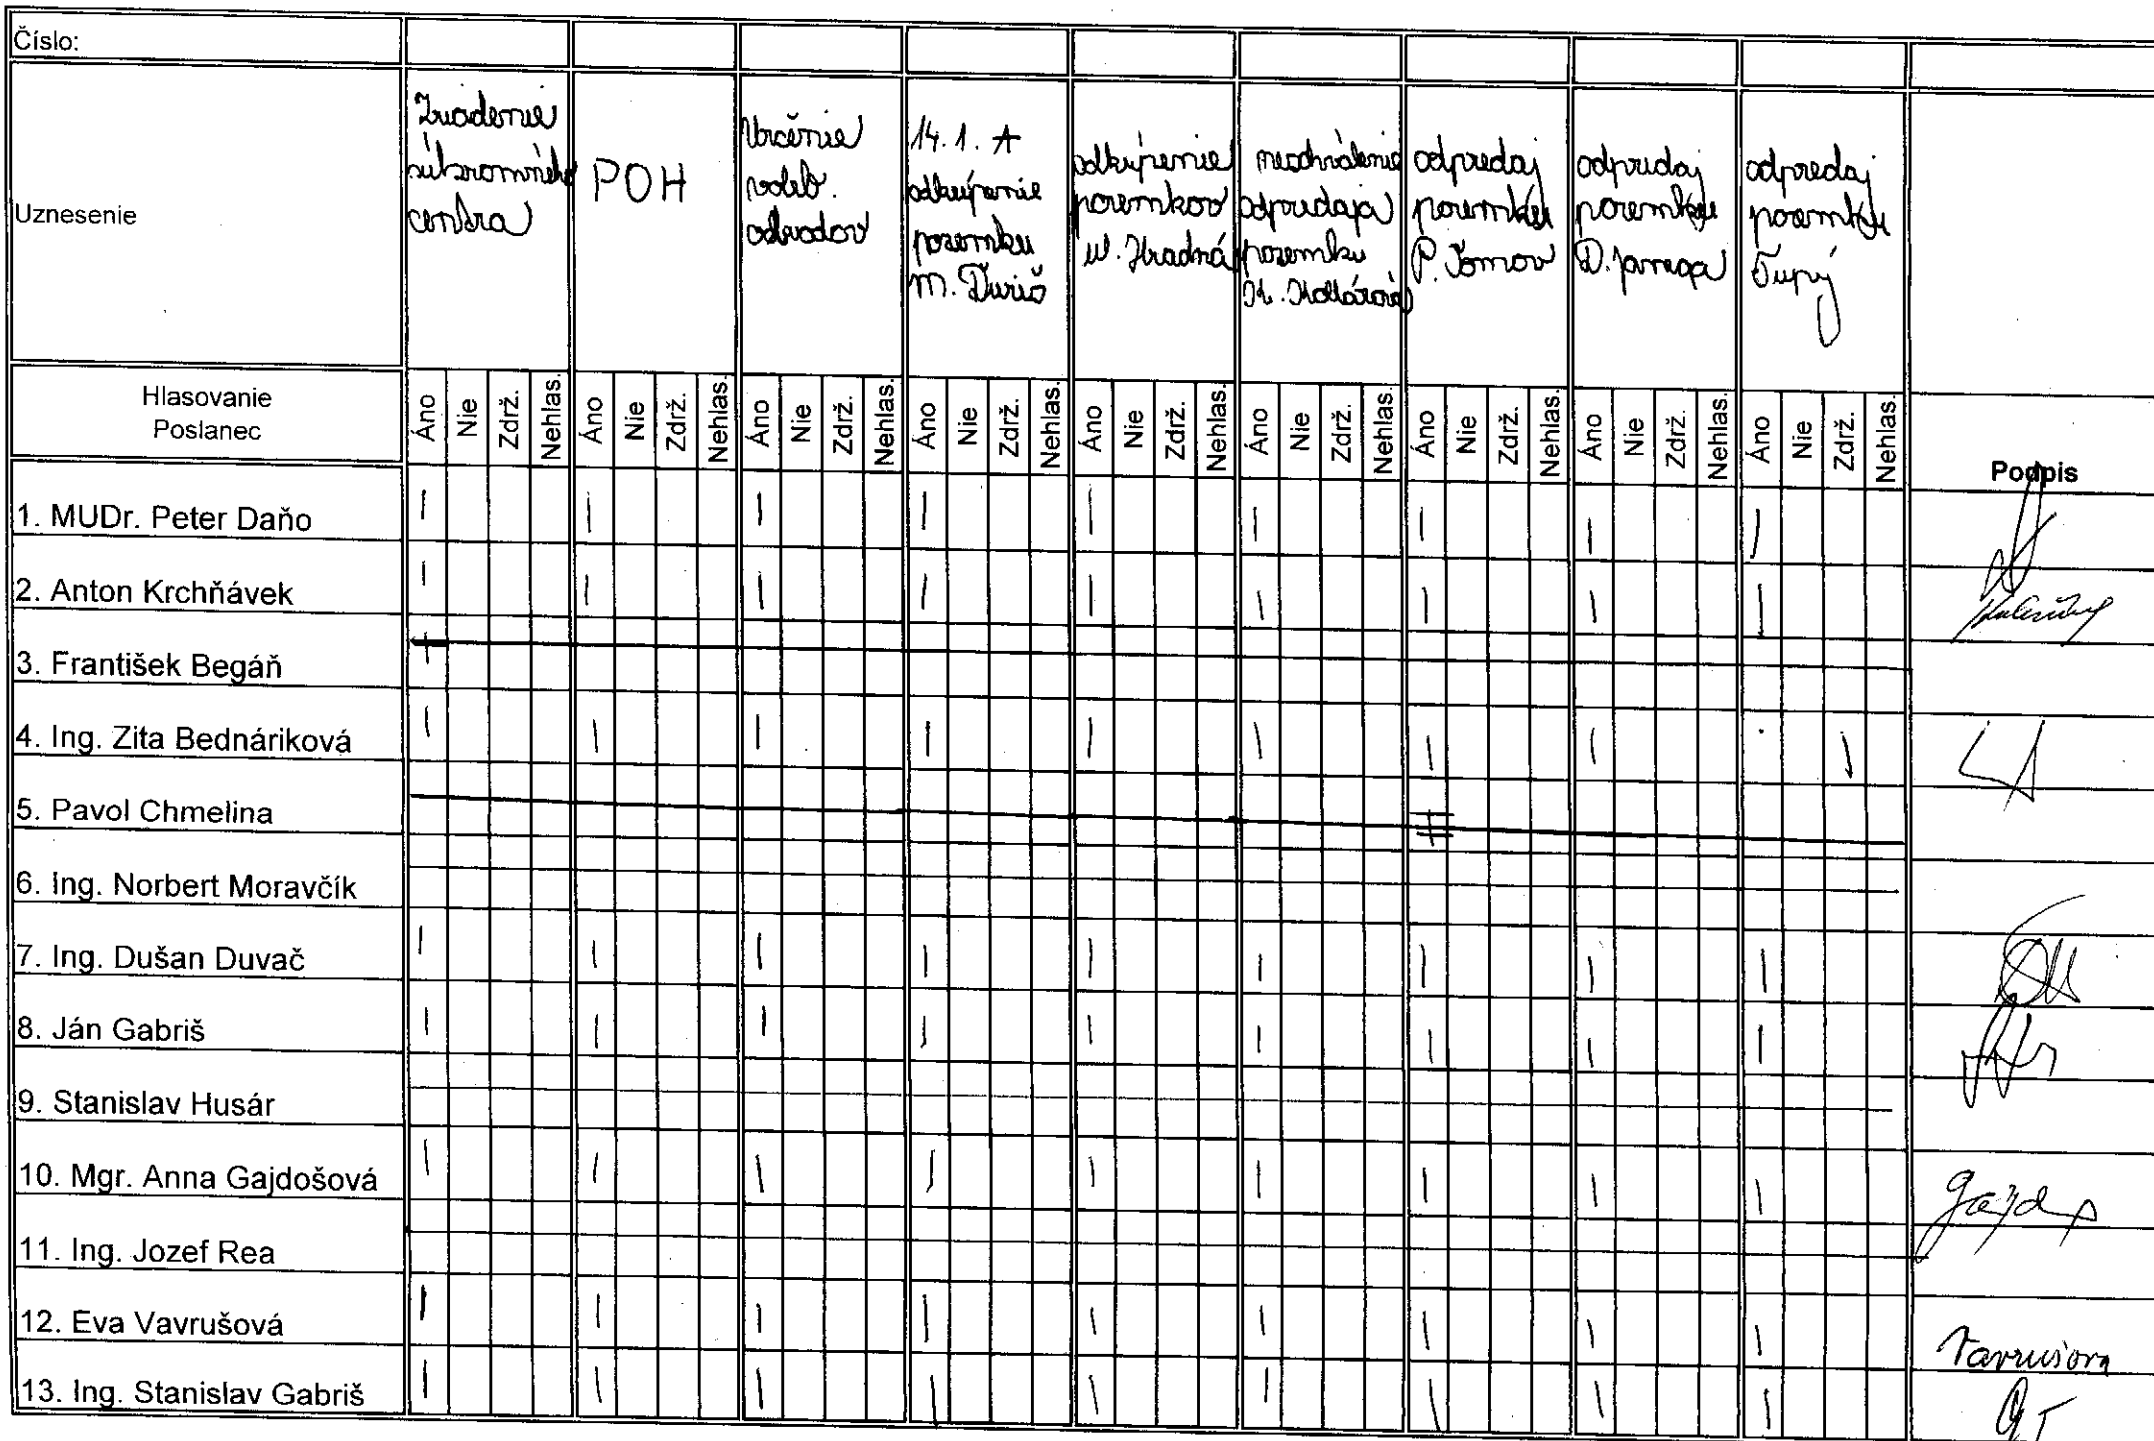 Číslo:
Uznesenie
Zriadenie
súkromného
centra
POH
Určenie
voleb.
obvodov
14. 1. A
odkúpenie
pozemku
M. Ďuriš
odkúpenie
pozemkov
ul. Hradná
neschválenie
odpredaja
pozemku
K. Kollárová
odpredaj
pozemku
P. Tomov
odpredaj
pozemku
D. Janega
odpredaj
pozemku
Tupý
Hlasovanie
Poslanec
Áno Nie Zdrž. Nehlas. Áno Nie Zdrž. Nehlas. Áno Nie Zdrž. Nehlas. Áno Nie Zdrž. Nehlas. Áno Nie Zdrž. Nehlas. Áno Nie Zdrž. Nehlas. Áno Nie Zdrž. Nehlas. Áno Nie Zdrž. Nehlas. Áno Nie Zdrž. Nehlas.
Podpis
1. MUDr. Peter Daňo
2. Anton Krchňávek
3. František Begáň
4. Ing. Zita Bednáriková
5. Pavol Chmelina
6. Ing. Norbert Moravčík
7. Ing. Dušan Duvač
8. Ján Gabriš
9. Stanislav Husár
10. Mgr. Anna Gajdošová
11. Ing. Jozef Rea
12. Eva Vavrušová
Vavrušova
13. Ing. Stanislav Gabriš